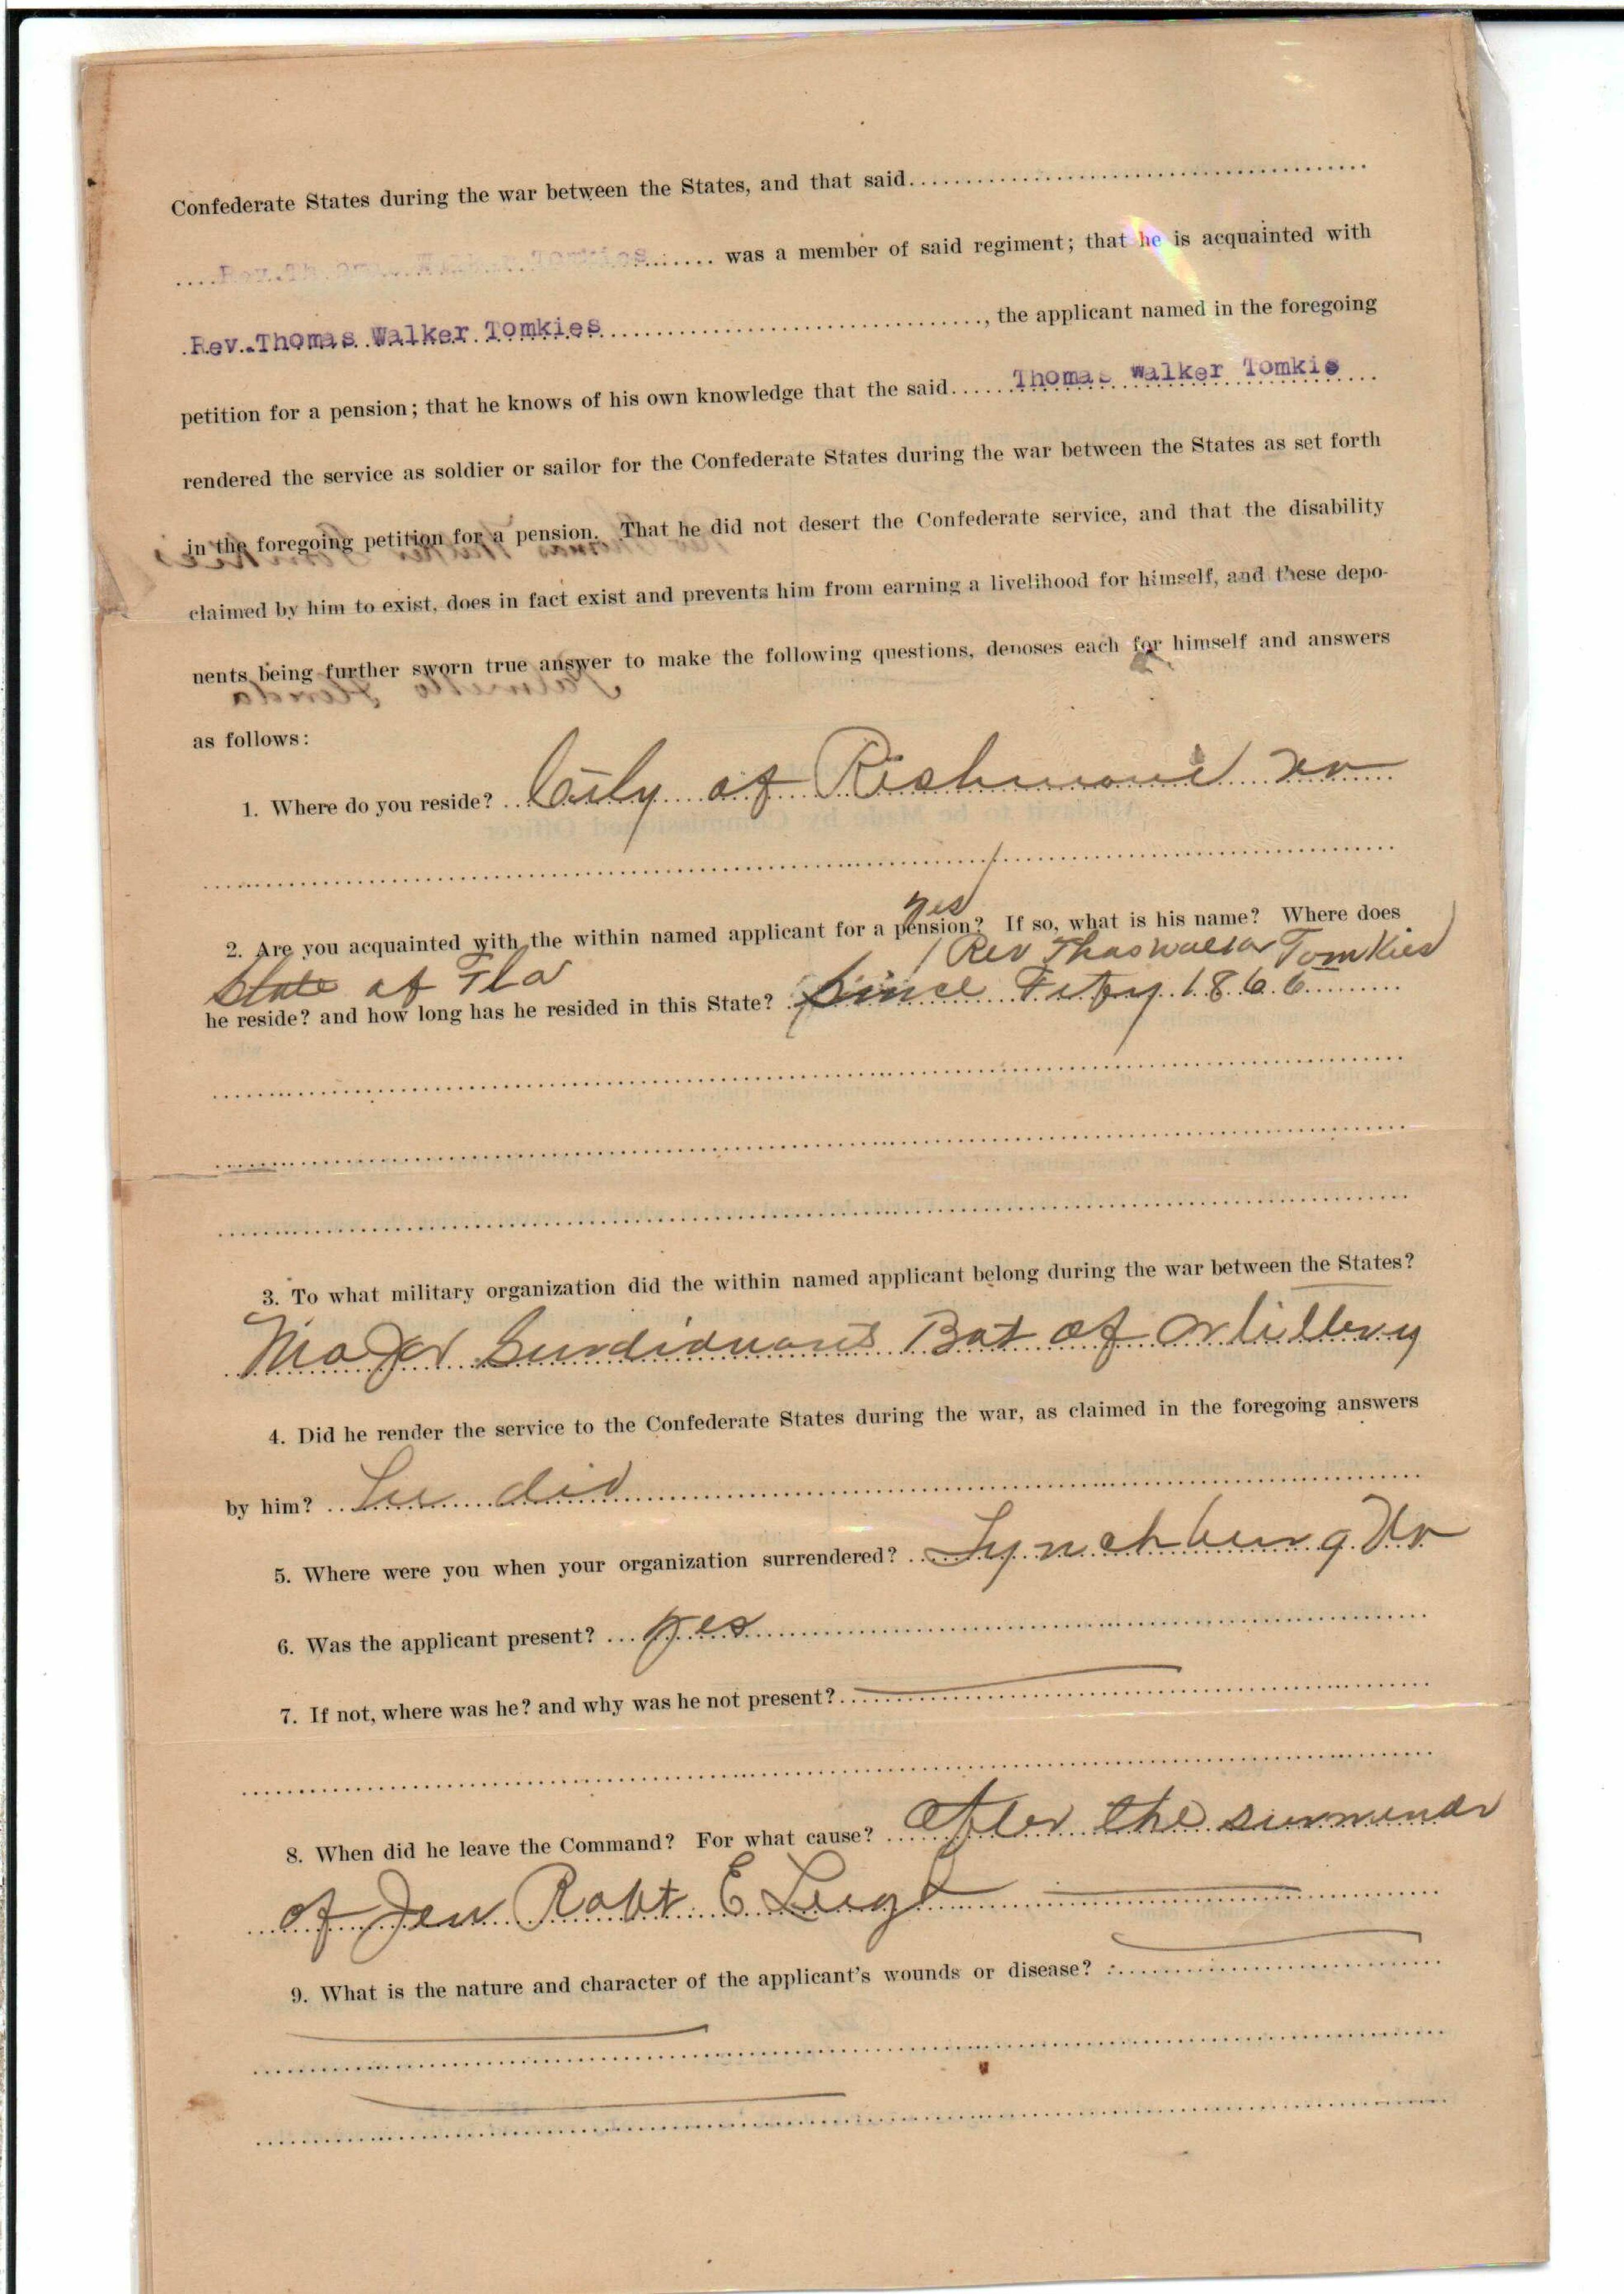 Confederate States during the war between the States, and that said
Rev. Thomas Walker Tomkies was a member of said regiment; that he is acquainted with
Rev. Thomas Walker Tomkies, the applicant named in the foregoing
petition for a pension; that he knows of his own knowledge that the said Thomas Walker Tomkie
rendered the service as soldier or sailor for the Confederate States during the war between the States as set forth
in the foregoing petition for a pension. That he did not desert the Confederate service, and that the disability
claimed by him to exist, does in fact exist and prevents him from earning a livelihood for himself, and these depo-
nents being further sworn true answer to make the following questions, deposes each for himself and answers
as follows:
1. Where do you reside? City of Richmond Va
yes
2. Are you acquainted with the within named applicant for a pension? If so, what is his name? Where does
Rev Thos Walker Tomkies
State of Fla
he reside? and how long has he resided in this State? Since Feby 1866
3. To what military organization did the within named applicant belong during the war between the States?
Major Bat of Artillery
4. Did he render the service to the Confederate States during the war, as claimed in the foregoing answers
by him? He did
5. Where were you when your organization surrendered? Lynchburg Va
6. Was the applicant present? yes
7. If not, where was he? and why was he not present?
8. When did he leave the Command? For what cause? After the surrender
of Gen Robt E Lee
9. What is the nature and character of the applicant's wounds or disease?